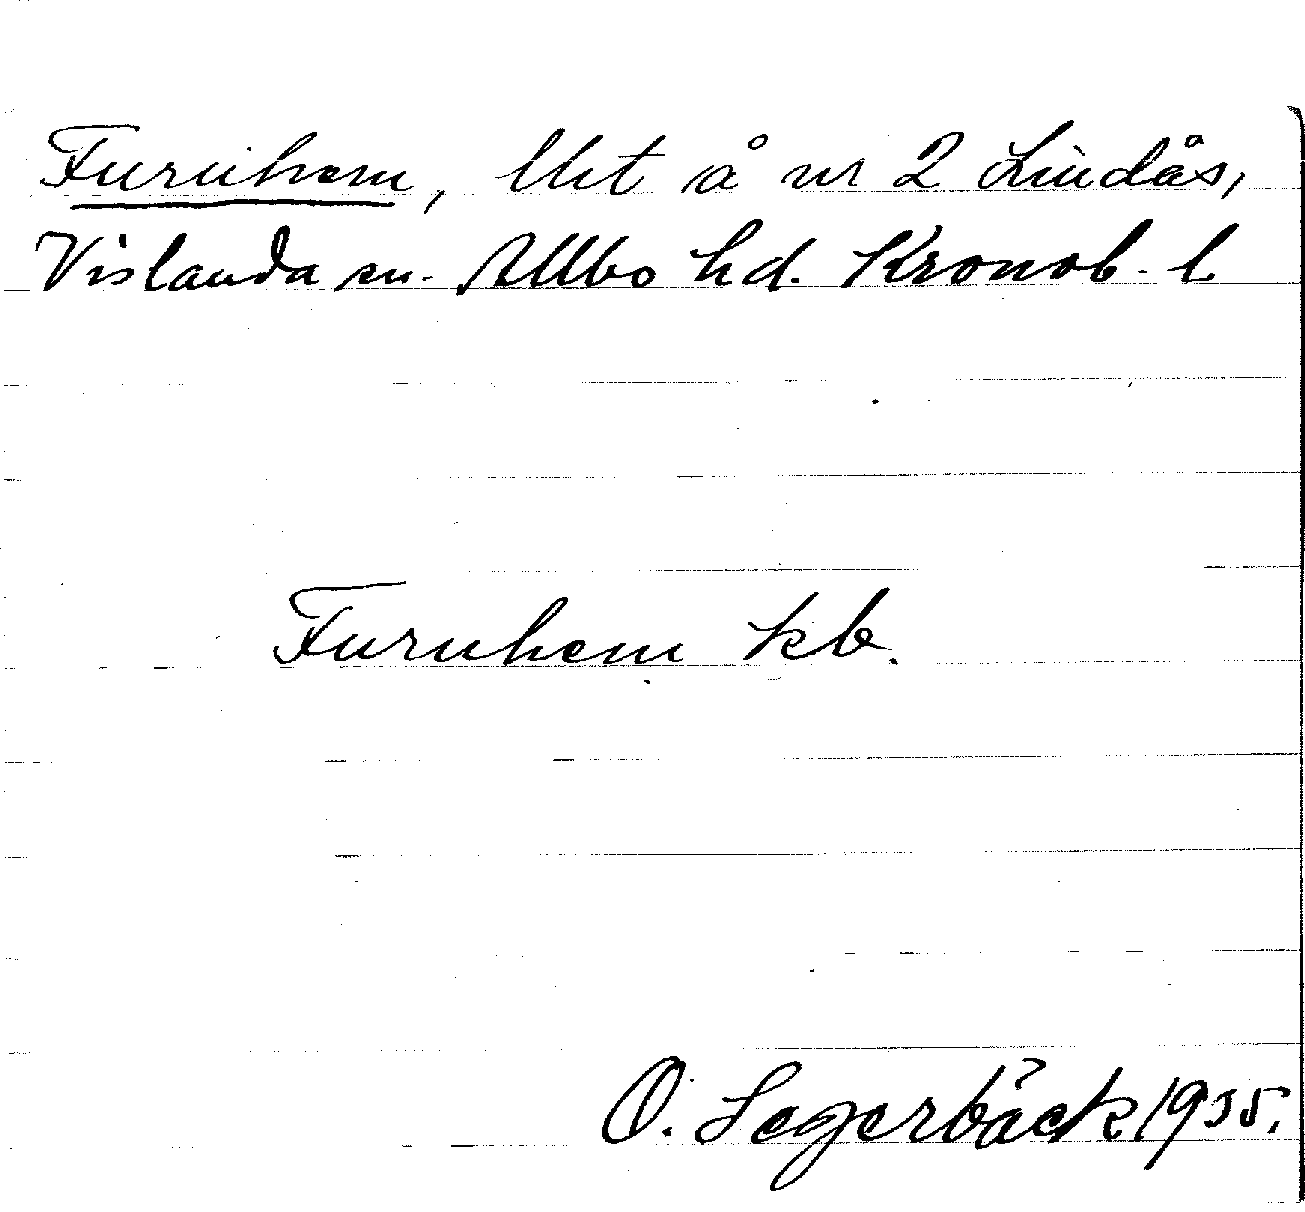 Furuhem, Ukt å nr 2 Lindås,
Vislanda sn. Allbo hd. Kronob. l
Furuhem kb.
O. Segerbäck 1935.